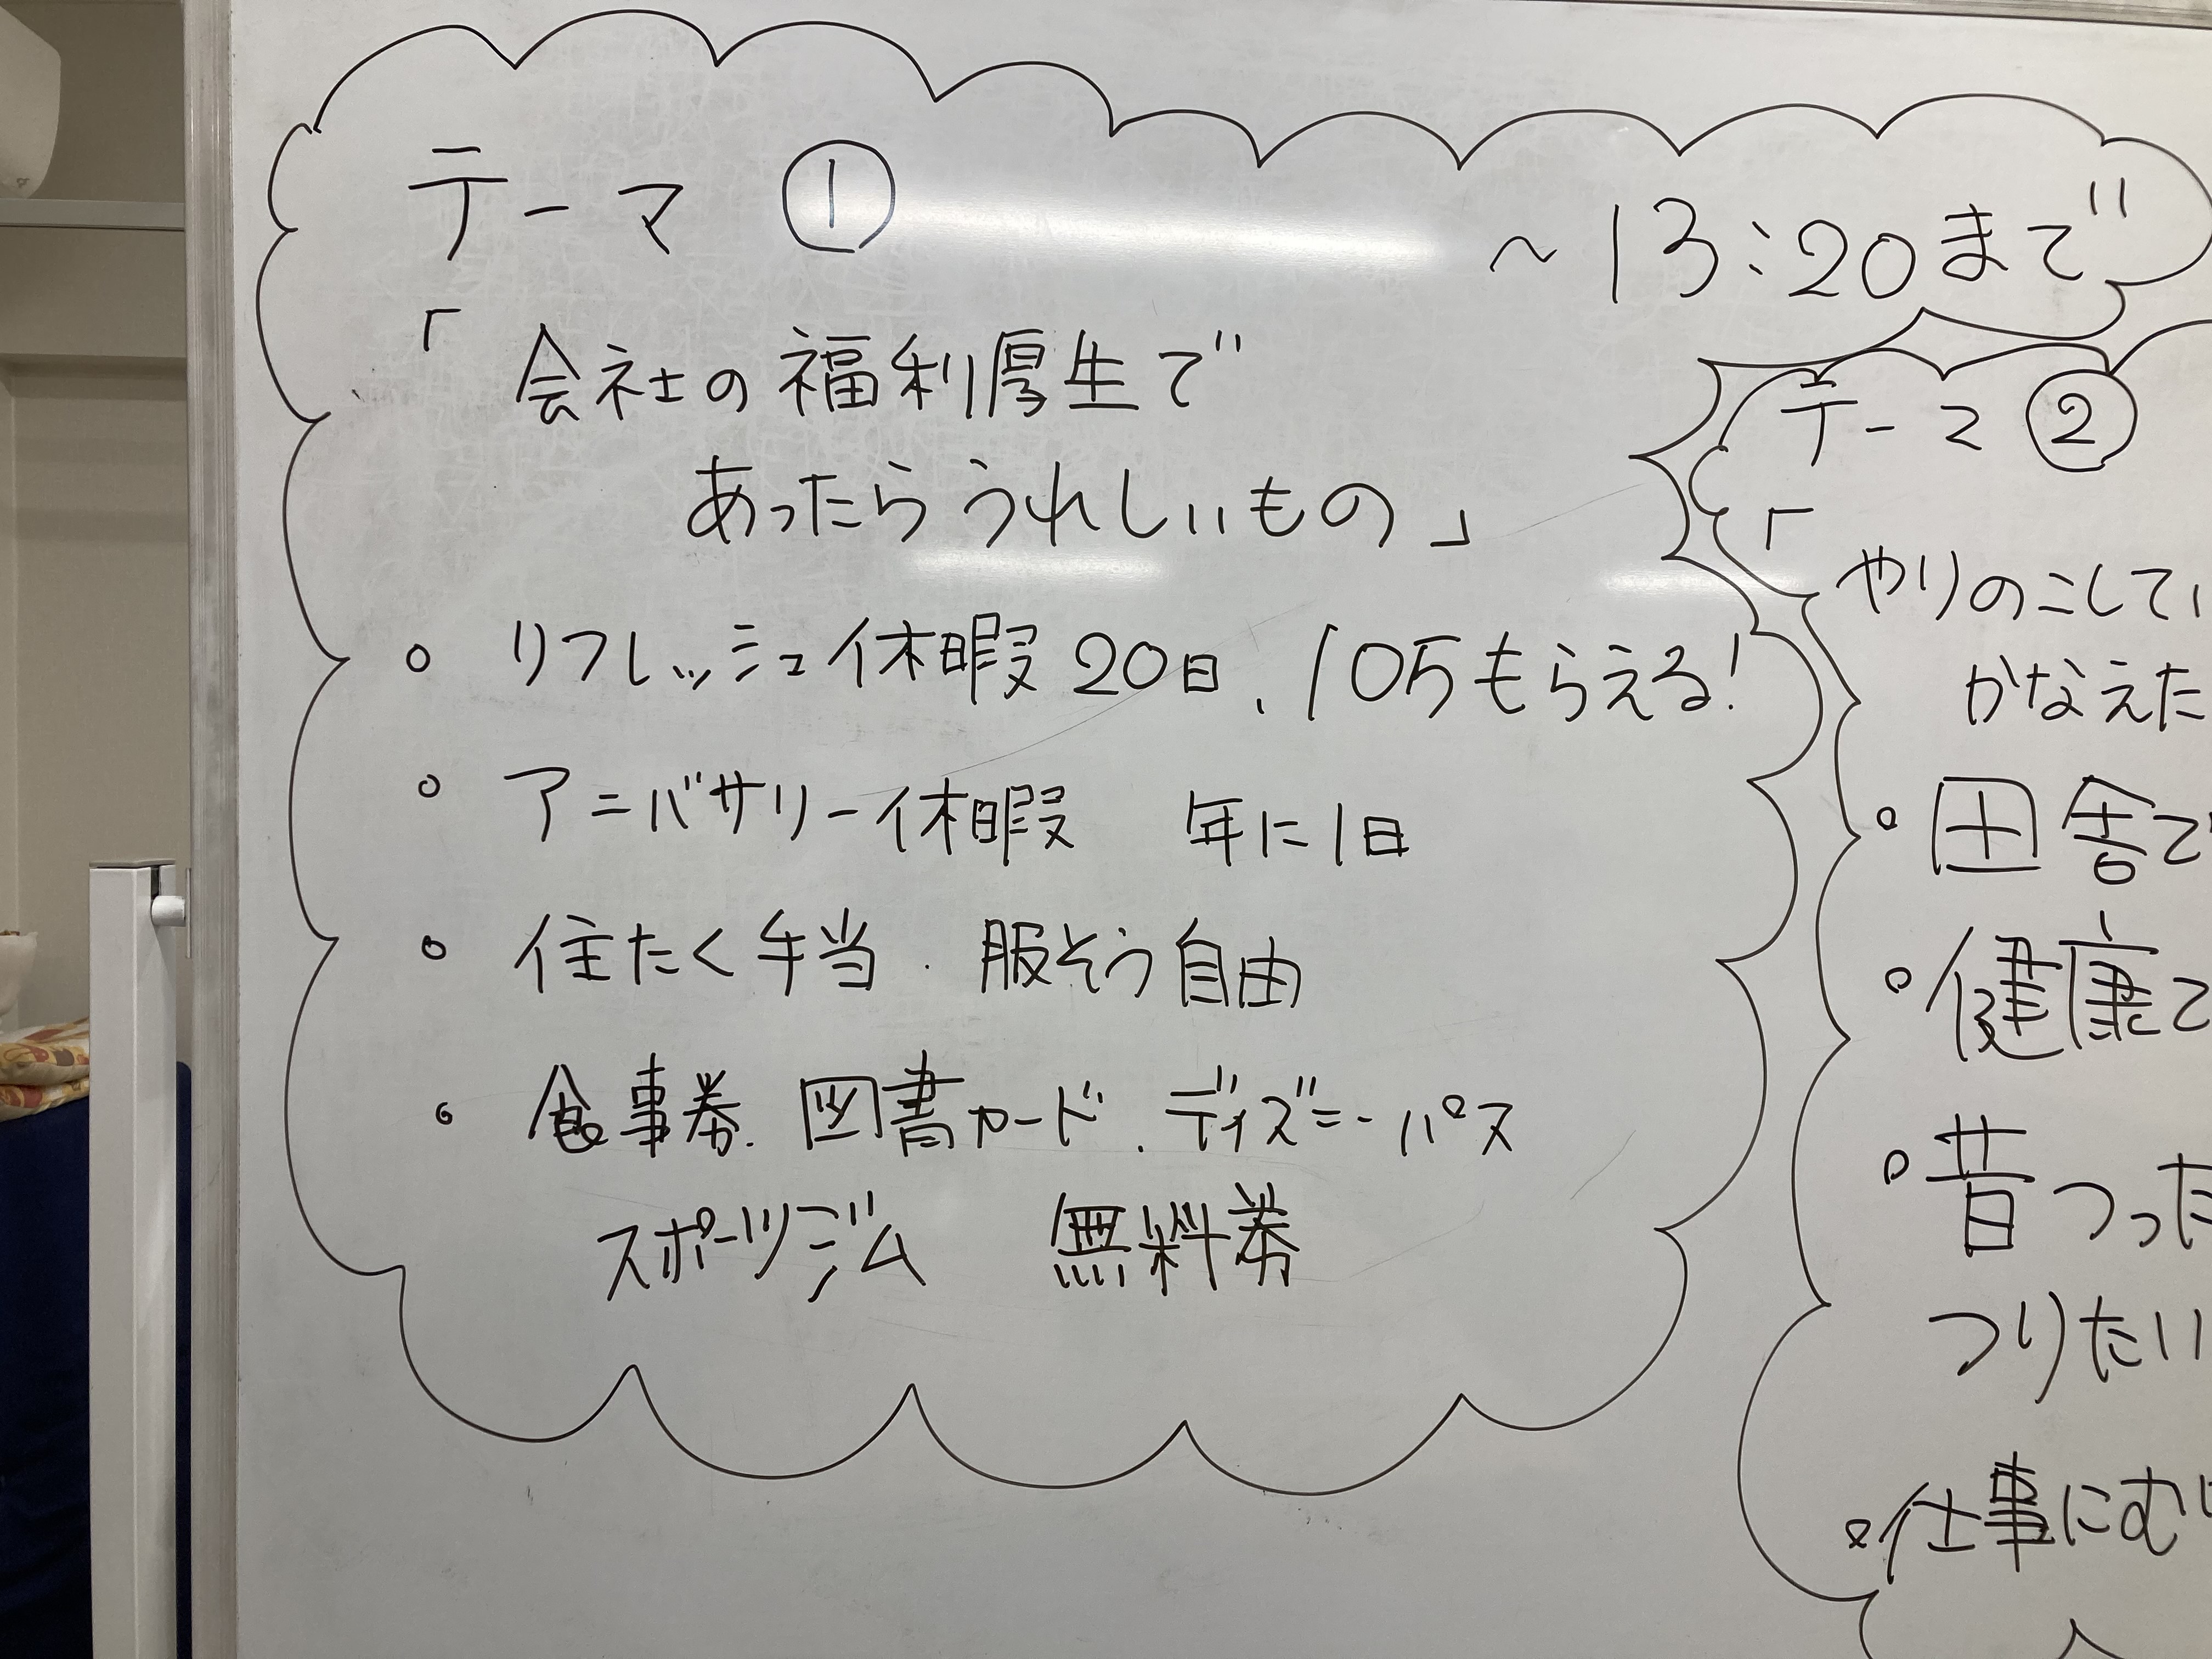 テーマ ①
～13:20まで
「会社の福利厚生で
あったらうれしいもの」
○ リフレッシュ休暇 20日、10万もらえる!
○ アニバサリー休暇 年に1日
○ 住たく手当. 服そう自由
○ 食事券. 図書カード. ディズニーパス
スポーツジム 無料券
テーマ ②
「
やりのこしてい
かなえた
○ 田舎で
○ 健康で
○ 昔つった
つりたい
○ 仕事にむ